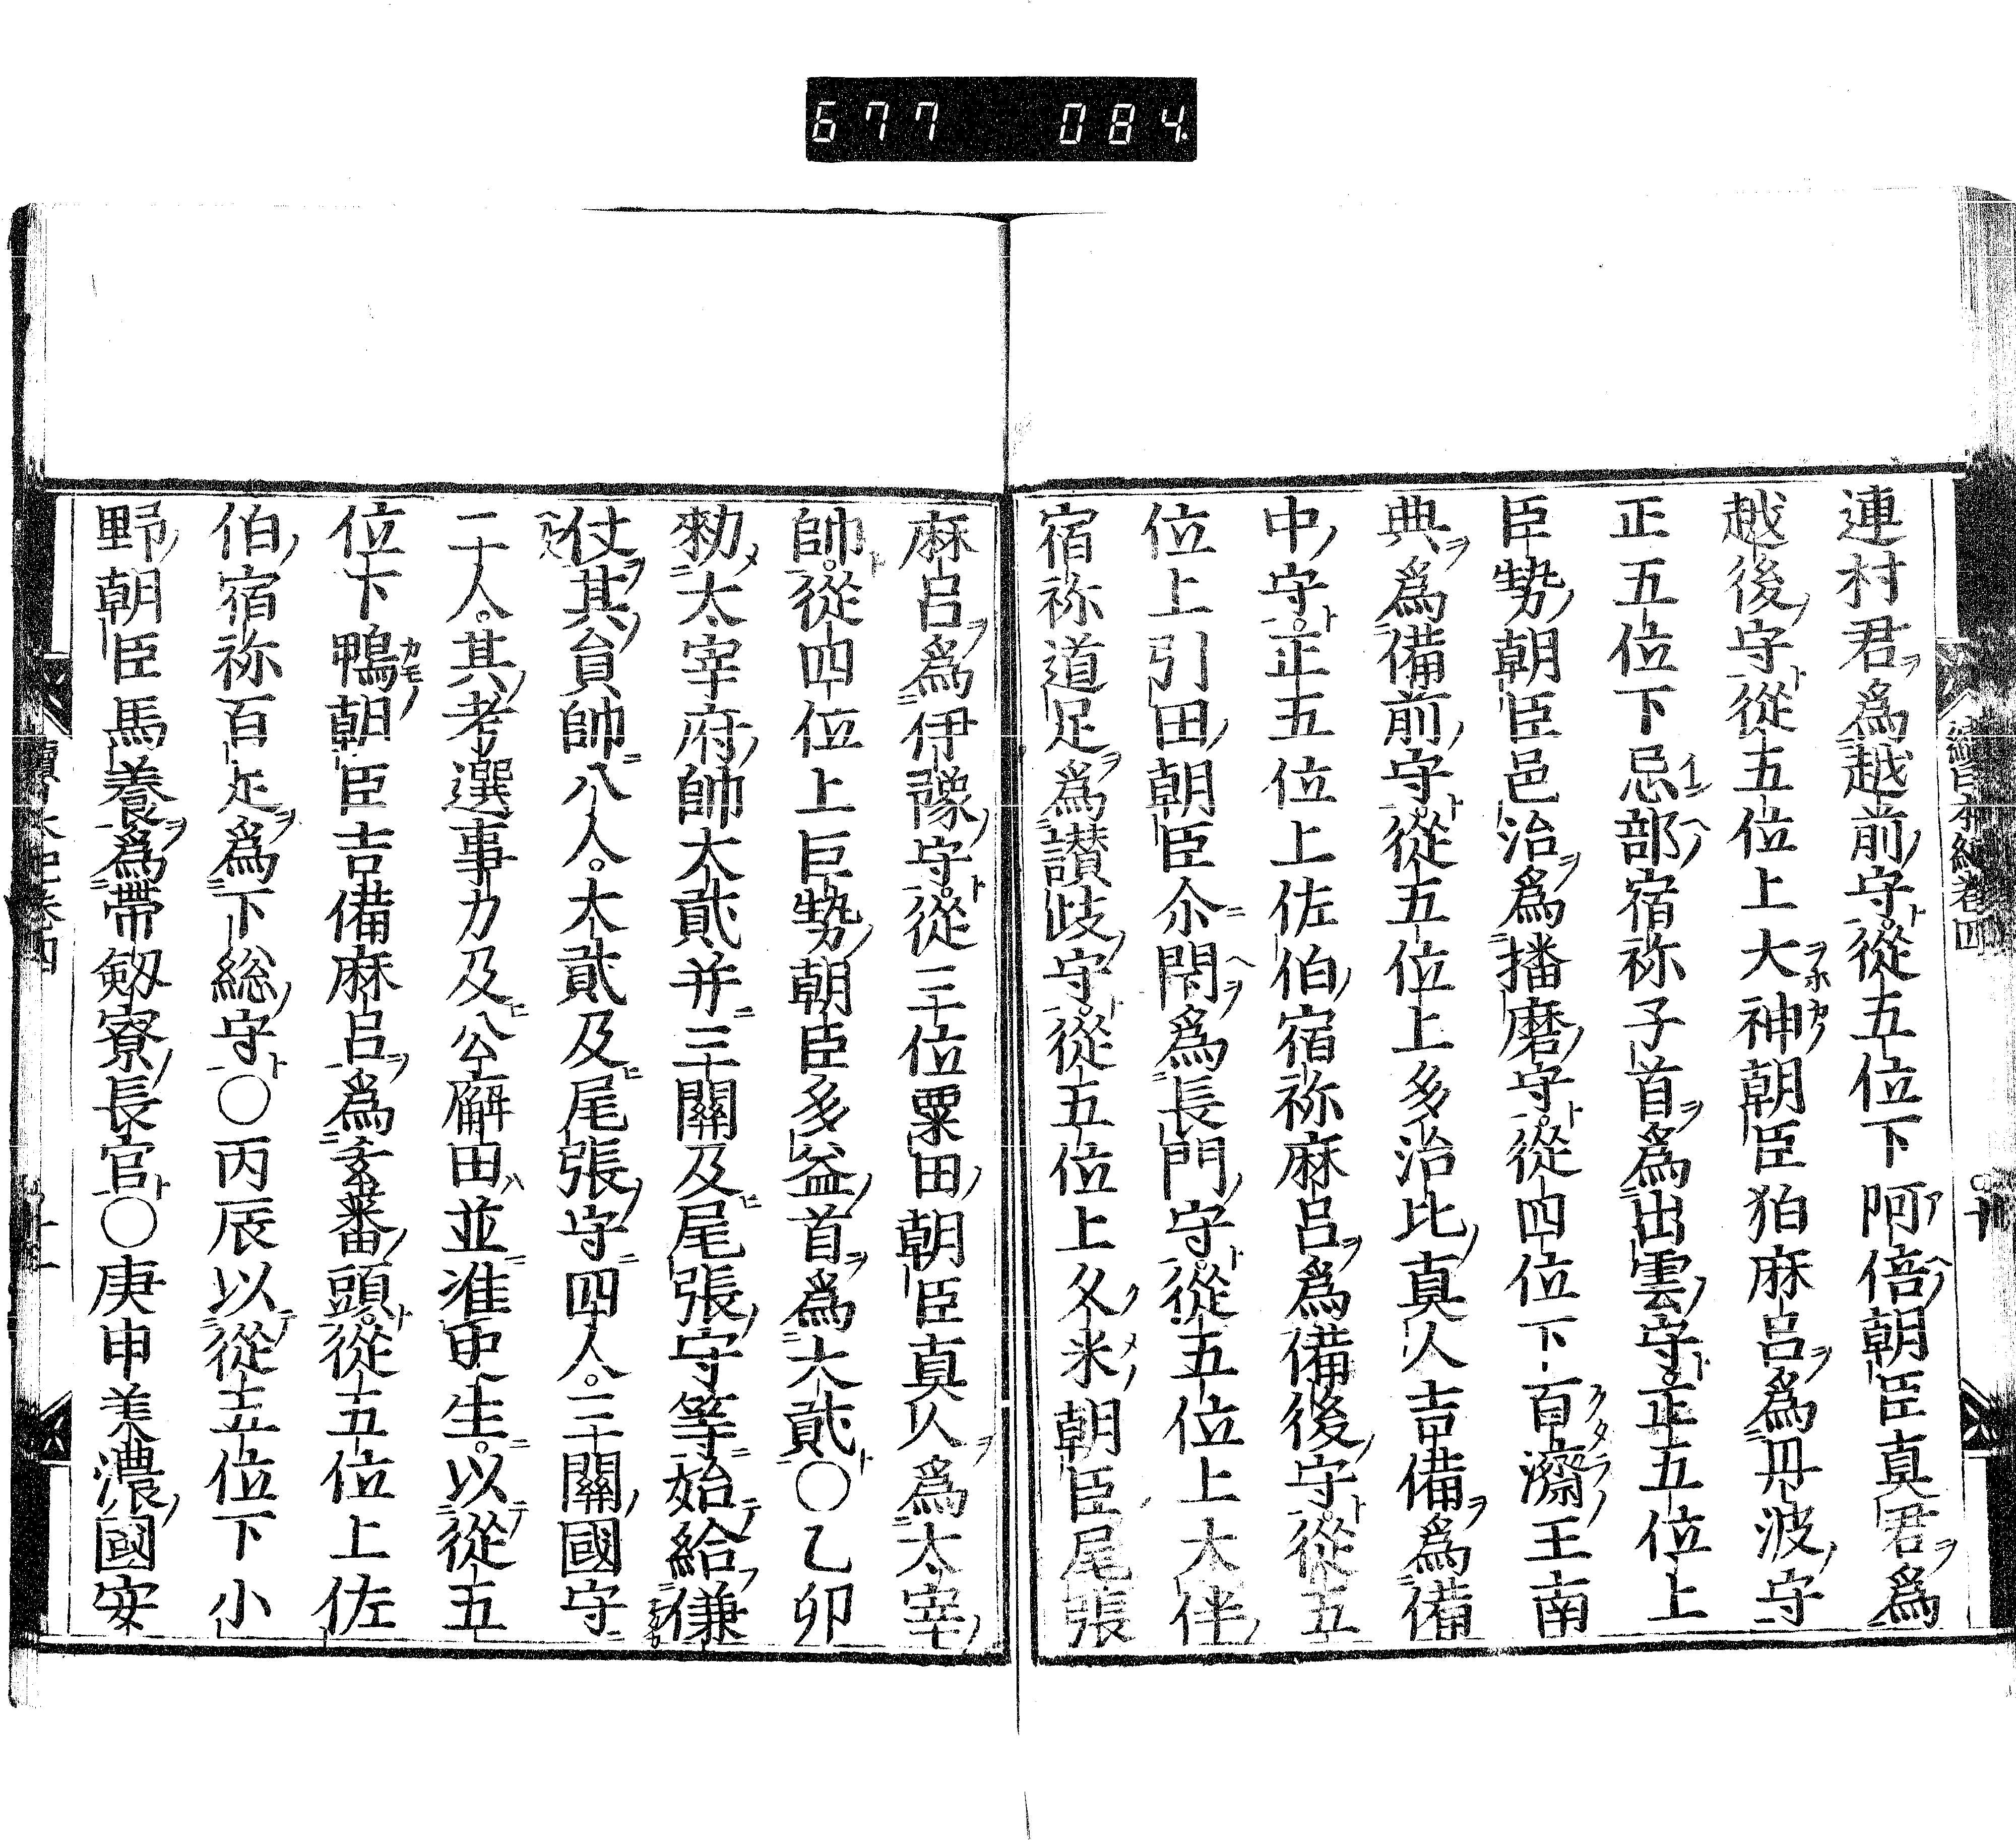 677 084
連村君爲越前守從五位下阿倍朝臣真君爲
越後守從五位上大神朝臣狛麻呂爲丹波守
正五位下忌部宿祢子首爲出雲守正五位上
臣勢朝臣邑治爲播磨守從四位下百濟王南
典爲備前守從五位上多治比真人吉備爲備
中守正五位上佐伯宿祢麻呂爲備後守從五
位上引田朝臣尒閇爲長門守從五位上大伴
宿祢道足爲讃歧守從五位上久米朝臣尾張
麻呂爲伊豫守從三位粟田朝臣真人爲太宰
帥從四位上巨勢朝臣多益首爲大貳〇乙卯
勑太宰府帥大貳并三關及尾張守等始給傔
仗其員帥八人大貳及尾張守四人三關國守
二人其考選事力及公廨田並准史生以從五
位下鴨朝臣吉備麻呂爲玄蕃頭從五位上佐
伯宿祢百足爲下総守〇丙辰以從五位下小
野朝臣馬養爲帶劔寮長官〇庚申美濃國安